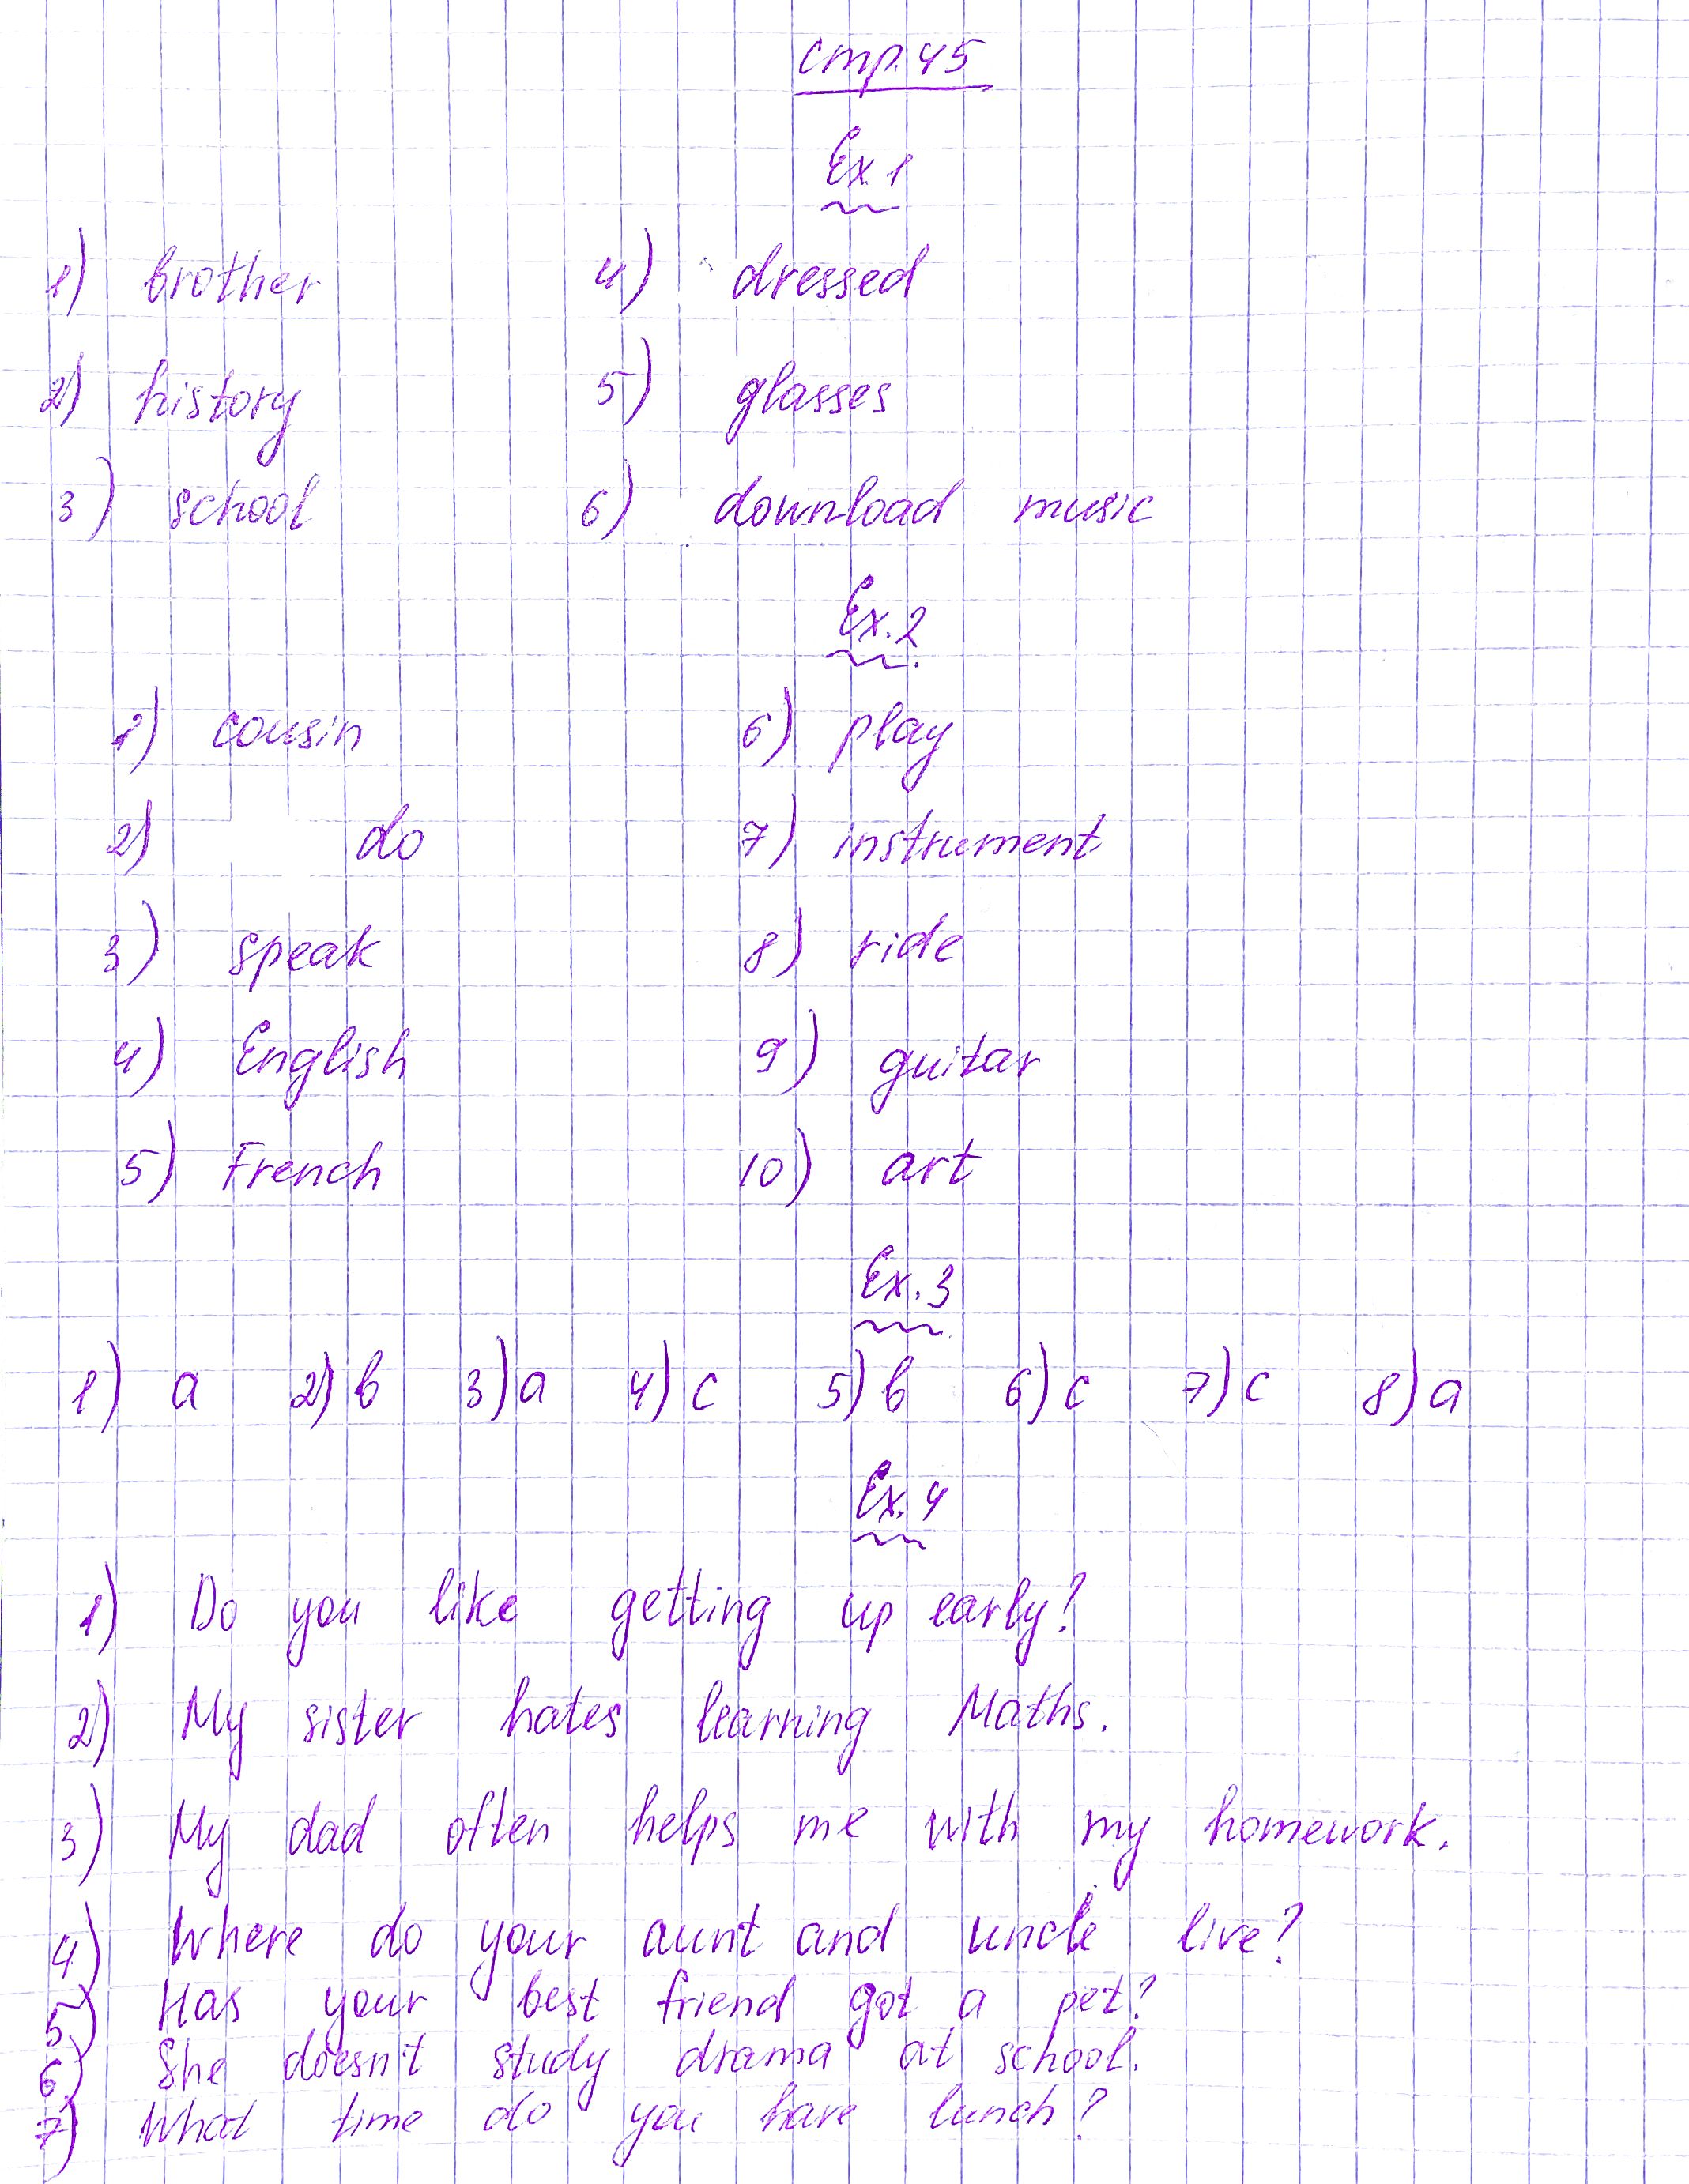 стр. 45
Ex. 1
1) brother 4) dressed
2) history 5) glasses
3) school 6) download music
Ex. 2
1) cousin 6) play
2) do 7) instrument
3) speak 8) ride
4) English 9) guitar
5) French 10) art
Ex. 3
1) a 2) b 3) a 4) c 5) b 6) c 7) c 8) a
Ex. 4
1) Do you like getting up early?
2) My sister hates learning Maths.
3) My dad often helps me with my homework.
4) Where do your aunt and uncle live?
5) Has your best friend got a pet?
6) She doesn't study drama at school.
7) What time do you have lunch?